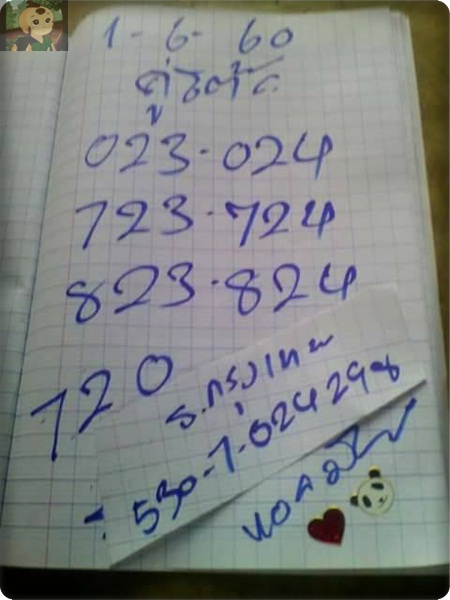 1-6-60
023-024
723-724
823-824
720
ธ.กรุงเทพ
530-7-024298